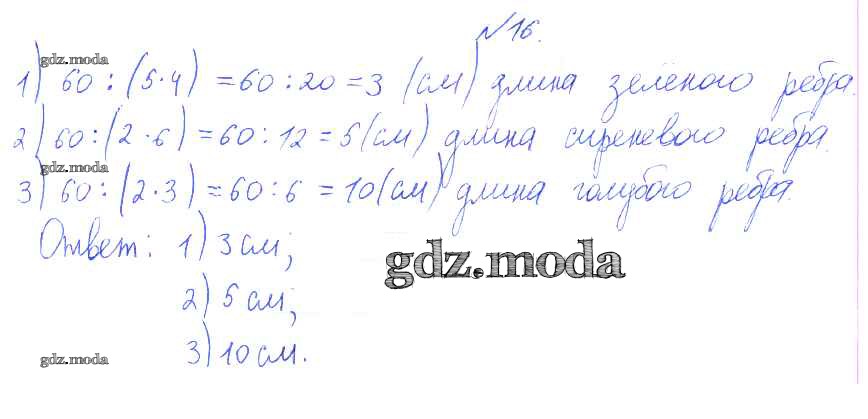 №16.
gdz.moda
1) 60 : (5·4) = 60 : 20 = 3 (см) длина зелёного ребра.
2) 60 : (2·6) = 60 : 12 = 5 (см) длина сиреневого ребра.
gdz.moda
3) 60 : (2·3) = 60 : 6 = 10 (см) длина голубого ребра.
Ответ: 1) 3 см;
gdz.moda
2) 5 см;
3) 10 см.
gdz.moda